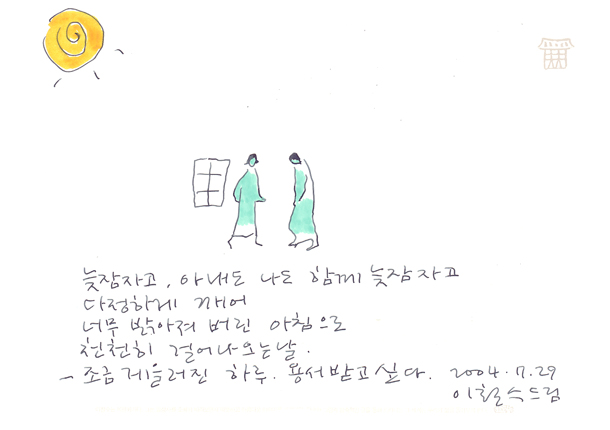 늦잠자고, 아내도 나도 함께 늦잠자고
다정하게 깨어
너무 밝아져 버린 아침으로
천천히 걸어나오는날.
~ 조금 게을러진 하루. 용서받고 싶다. 2004.7.29
이철수드림